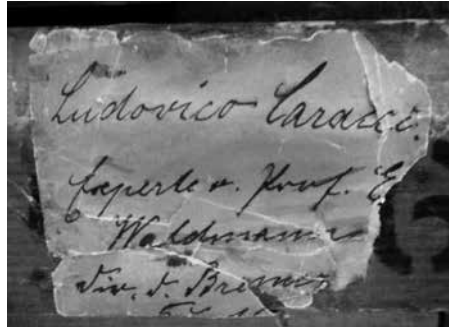 Ludovico Caracci.
Experte v. Prof. E
Waldmann
Dir. d. Bremer